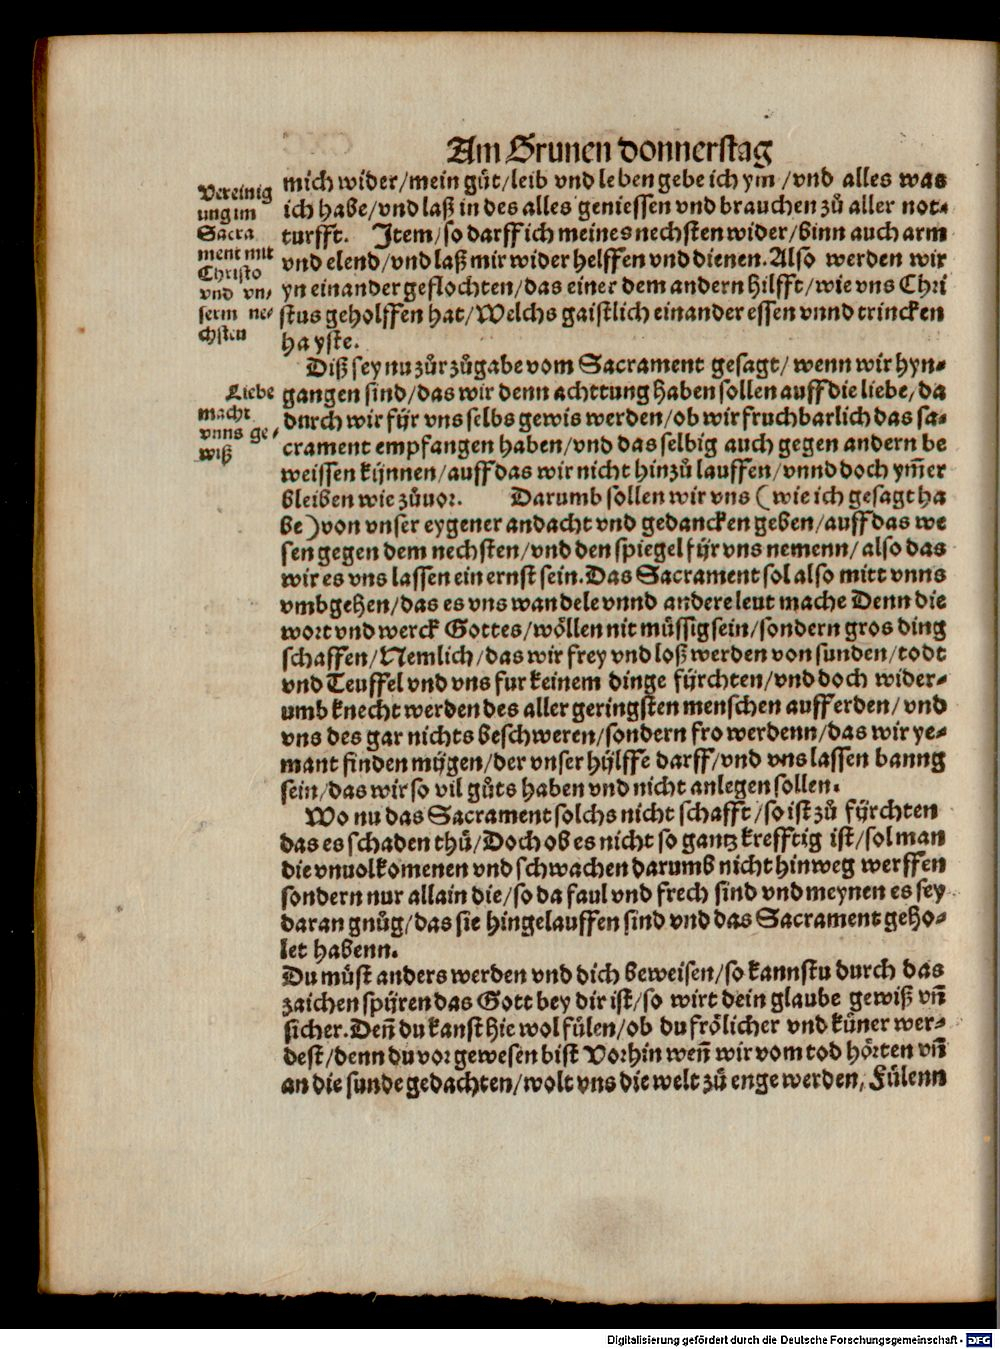 Am Grunen donnerstag
Vereinig
ung im
Sacra
ment mit
Christo
vnd vn/
serm ne/
chsten
mich wider/mein gůt/leib vnd leben gebe ich ym/vnd alles was
ich habe/vnd laß in des alles geniessen vnd brauchen zů aller not-
turfft. Item/so darff ich meines nechsten wider/binn auch arm
vnd elend/vnd laß mir wider helffen vnd dienen. Also werden wir
yn einander geflochten/das einer dem andern hilfft/wie vns Chri
stus geholffen hat/Welchs gaistlich einander essen vnnd trincken
hayste.
Diß sey nu zůr zůgabe vom Sacrament gesagt/wenn wir hyn-
Liebe
macht
vnns ge/
wiß
gangen sind/das wir denn achttung haben sollen auff die liebe/da
durch wir fÿr vns selbs gewis werden/ob wir fruchbarlich das sa-
crament empfangen haben/vnd das selbig auch gegen andern be
weissen kÿnnen/auff das wir nicht hinzů lauffen/vnnd doch ym̄er
bleiben wie zůuor. Darumb sollen wir vns (wie ich gesagt ha
be) von vnser eygener andacht vnd gedancken geben/auff das we
sen gegen dem nechsten/vnd den spiegel fÿr vns nemenn/also das
wir es vns lassen ein ernst sein. Das Sacrament sol also mitt vnns
vmbgehen/das es vns wandele vnnd andere leut mache Denn die
wort vnd werck Gottes/wöllen nit müssig sein/sondern gros ding
schaffen/Nemlich/das wir frey vnd loß werden von sunden/todt
vnd Teuffel vnd vns fur keinem dinge fÿrchten/vnd doch wider-
umb knecht werden des aller geringsten menschen auff erden/vnd
vns des gar nichts beschweren/sondern fro werdenn/das wir ye-
mant finden mÿgen/der vnser hÿlffe darff/vnd vns lassen banng
sein/das wir so vil gůts haben vnd nicht anlegen sollen.
Wo nu das Sacrament solchs nicht schafft/so ist zů fÿrchten
das es schaden thů/Doch ob es nicht so gantz krefftig ist/sol man
die vnuolkomenen vnd schwachen darumb nicht hinweg werffen
sondern nur allain die/so da faul vnd frech sind vnd meynen es sey
daran gnůg/das sie hingelauffen sind vnd das Sacrament geho-
let habenn.
Du můst anders werden vnd dich beweisen/so kannstu durch das
zaichen spÿren das Gott bey dir ist/so wirt dein glaube gewiß vn̄
sicher. Den̄ du kanst hie wol fülen/ob du frölicher vnd küner wer-
dest/denn du vor gewesen bist Vorhin wen̄ wir vom tod hörten vn̄
an die sunde gedachten/wolt vns die welt zů enge werden, Fülenn
Digitalisierung gefördert durch die Deutsche Forschungsgemeinschaft - DFG